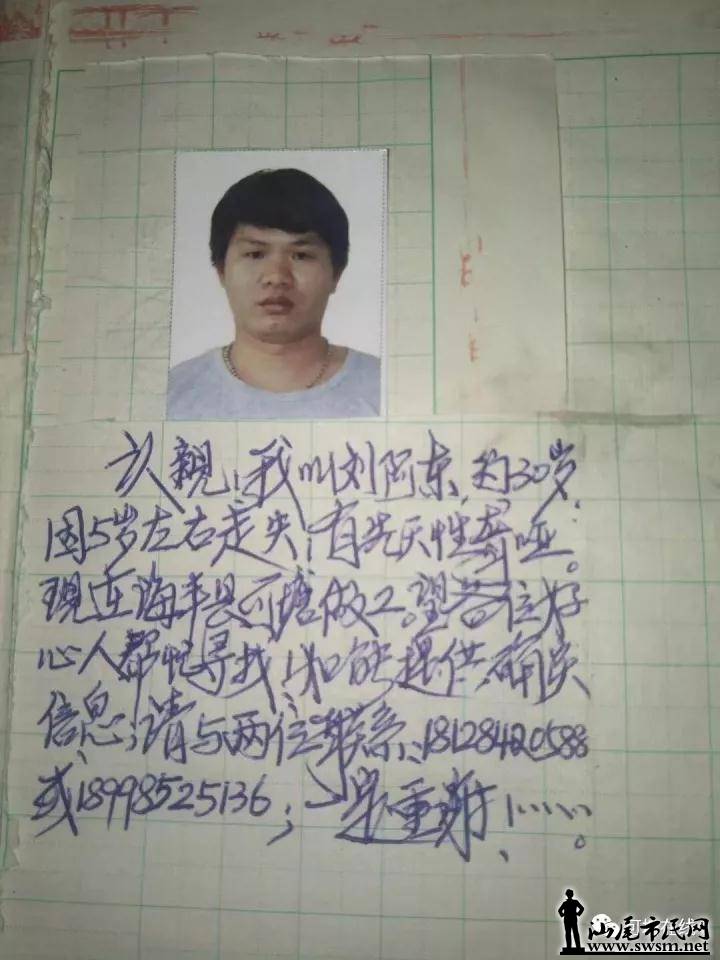 认親；我叫刘阿东，约30岁，
因5岁左右走失；有先天性聋哑。
現在海丰县可塘做工。望各位好
心人帮忙尋找，如能提供确实
信息；请与两位联系：18128420588
或18998525136；一定重谢！……。
可塘在线
汕尾市民网
www.swsm.net